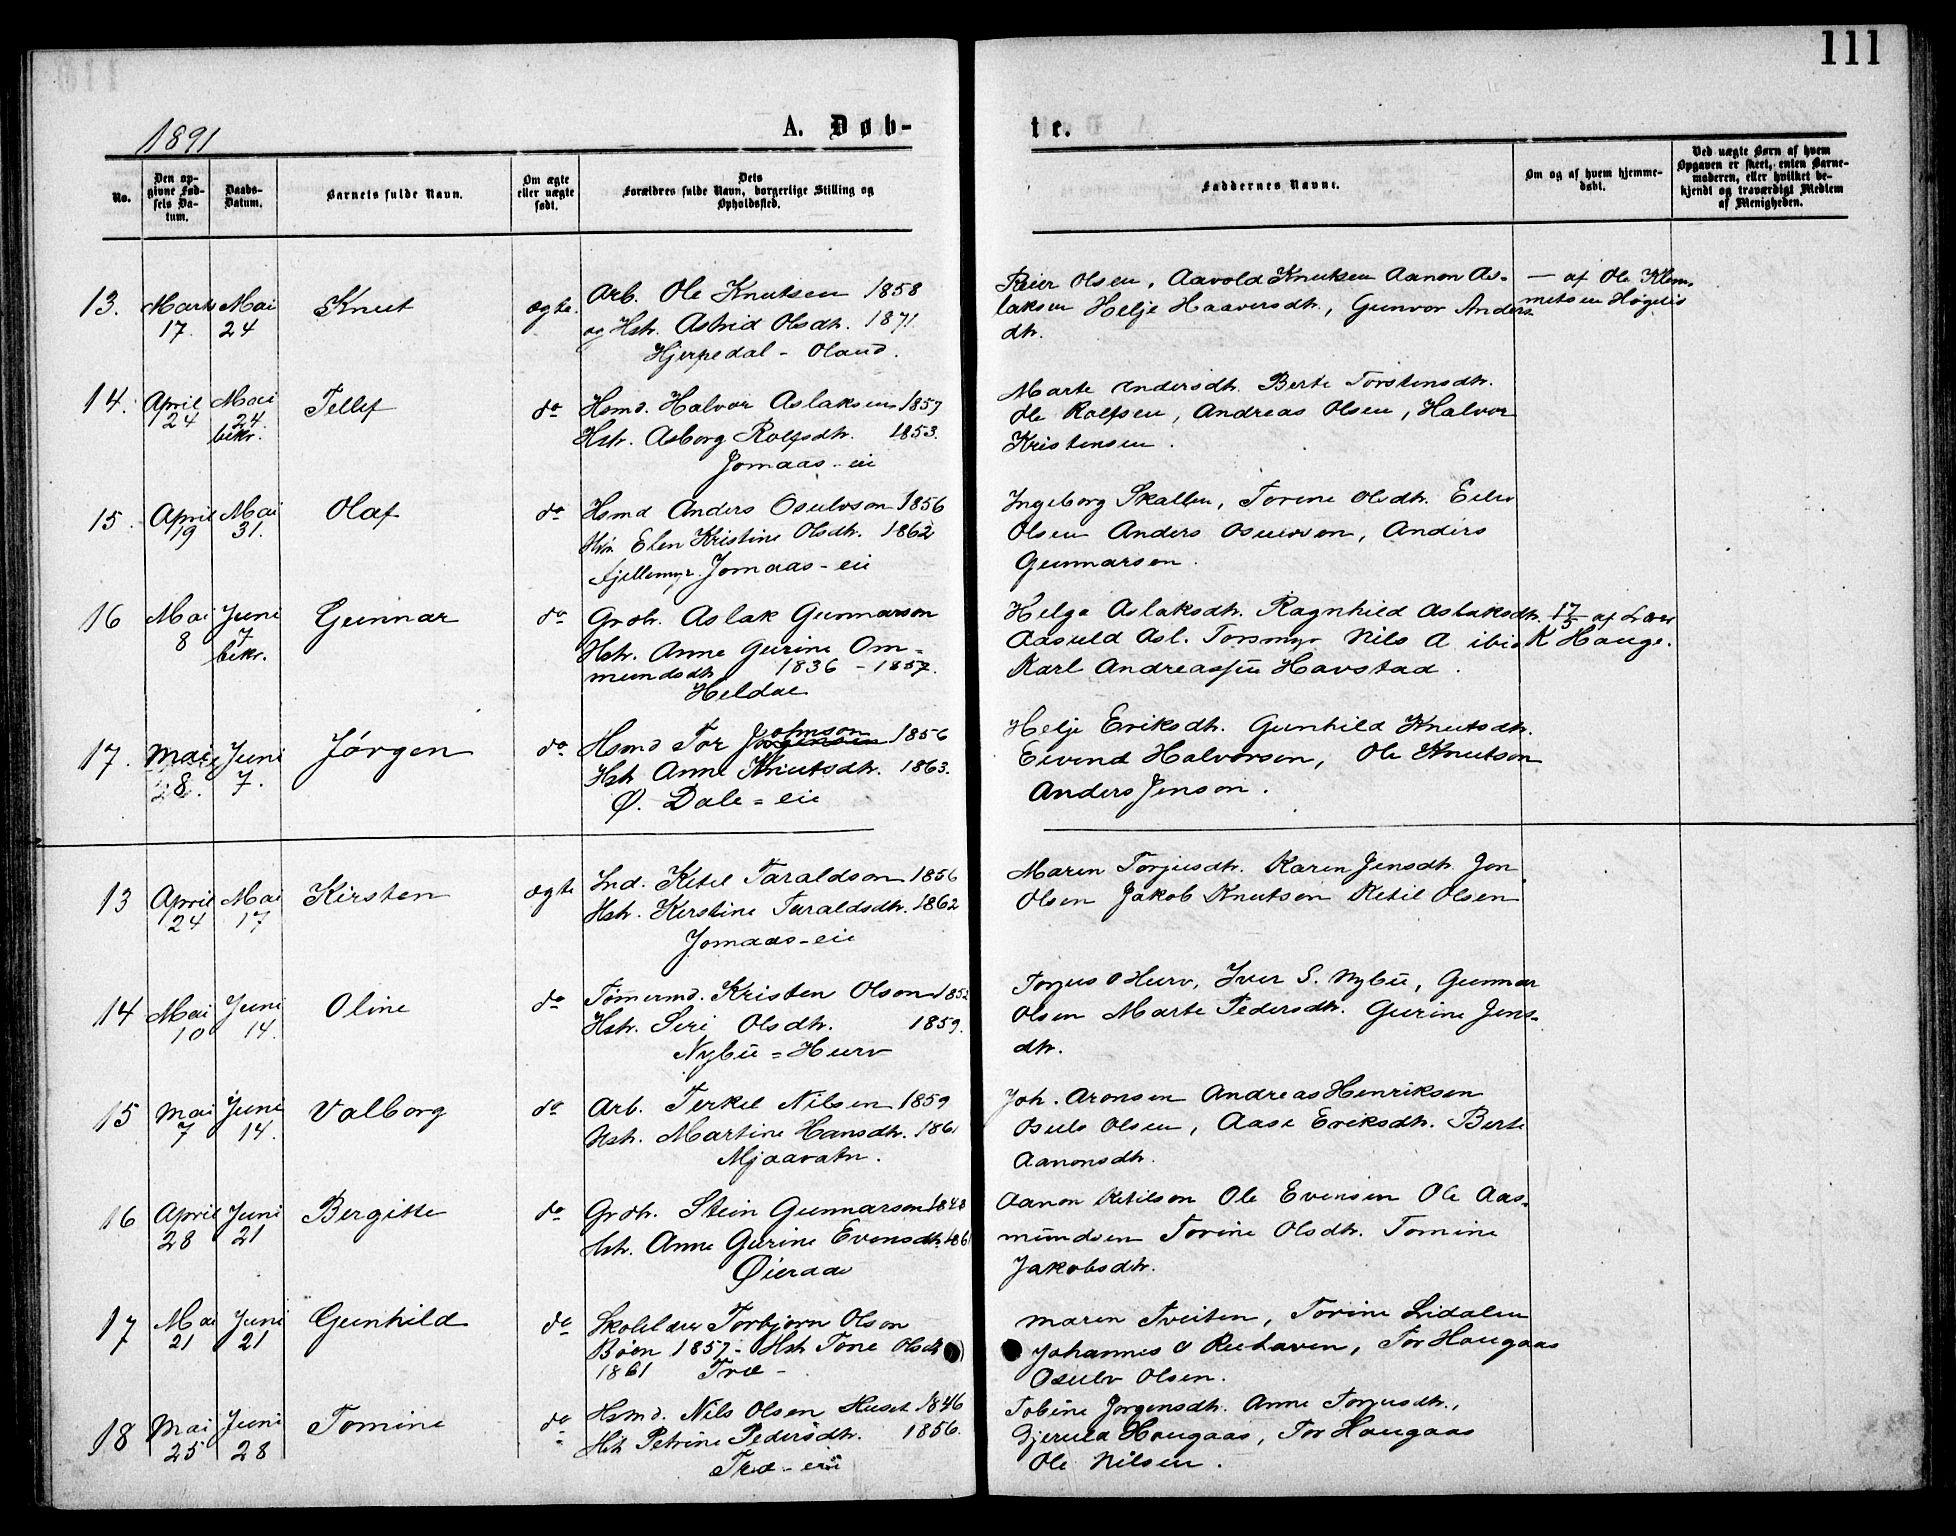 111
1891
A. Døb-
te.
No.
Den op-
givne Fød-
sels Da-
tum.
Daabs-
Datum.
Barnets fulde Navn.
Om ægte
eller uægte
født.
Dets
Forældres fulde Navn, borgerlige Stilling og
Opholdssted.
Faddernes Navne.
Om og af hvem hjemme-
døbt.
Ved uægte Børn af hvem
Opgaven er skeet, enten Barne-
moderen, eller hvilket be-
kjendt og troværdigt Medlem
af Menigheden.
13. Marts Mai Knut ægte. Arb. Ole Knutsen 1858
17. 24 og Hstr. Astrid Olsdtr. 1871
Hjerpedal - Oland.
Reier Olsen, Aavold Knutsen Aanon As-
laksen Helje Haaversdtr, Gunvor Anders
dtr.
- af Ole Klem-
metsen Høgelis
14. April Mai Tellef do Hsmd. Halvor Aslaksen 1857
24 24. Hstr. Asborg Rolfsdtr. 1853.
bekr. Jomaas - eie
Marte Andersdtr. Berte Torstensdtr.
Ole Rolfsen, Andreas Olsen, Halvor
Kristensen.
15. April Mai Olaf do Hsmd Anders Osulvson 1856
19 31. Elen Kristine Olsdtr. 1862
Fjellemyr. Jomaas - eie
Ingeborg Skallen, Torine Olsdtr. Eilev
Olsen Anders Osulvson, Anders
Gunnarsen.
16 Mai Juni Gunnar do Grdbr. Aslak Gunnarson
8 7 Hstr. Anne Gurine Om-
bekr. mundsdtr 1836 - 1857.
Heldal
Helga Aslaksdtr. Ragnhild Aslaksdtr.
Aasuld Asl. Torsmyr Nils A ibid
Karl Andreassen Havstad.
17/5 af Lærer
K Hauge.
17. Mai Juni Jørgen do Hsmd Tor Johnson 1856
28. 7. Hstr Anne Knutsdtr. 1863.
Ø. Dale = eie
Helje Eriksdtr. Gunhild Knutsdtr.
Eivind Halvorsen, Ole Knutson
Anders Jenson.
13 April Mai Kirsten ægte Ind. Ketil Taraldson 1856
24 17 Hstr. Kerstine Taraldsdtr. 1862
Jomaas - eie
Maren Torjusdtr. Karen Jensdtr Jon
Olsen Jakob Knutson Ketil Olsen
14 Mai Juni Oline do Tømermd. Kristen Olson 1852
10 14. Hstr. Seri Olsdtr. 1859.
Nybu = Hurv
Torjus O Hurv, Iver S. Nybu, Gunnar
Olsen Marte Pedersdtr. Gurine Jens-
dtr.
15 Mai Juni Valborg do Arb. Terkel Nilsen 1859
7 14. Hstr. Martine Hansdtr. 1861
Mjaavatn.
Joh. Aronsen Andreas Henriksen
Osulv Olsen, Aase Eriksdtr. Berte
Aanonsdtr.
16 April Juni Bergitte do Grdbr. Stein Gunnarson 1848
28 21 Hstr. Anne Gurine Evensdtr. 1861
Øieraas
Aanon Ketilson Ole Evensen Ole Aas-
mundsen Torine Olsdtr. Tomine
Jakobsdtr.
17 Mai Juni Gunhild do Skolelærer Torbjørn Olson
21 21 Bøen 1857 - Hstr Tone Olsdtr
1861 Træ -
Maren Tveiten, Torine Lidalen
Johannes O Reehaven, Tor Hougaas
Osulv Olsen.
18 Mai Juni Tomine do Hsmd. Nils Olsen Huset 1846
25 28 Hstr Petrine Pedersdtr. 1856.
Træ - eie
Tobine Jørgensdtr. Anne Torjusdtr.,
Gjeruld Hougaas, Tor Hougaas
Ole Nilsen.